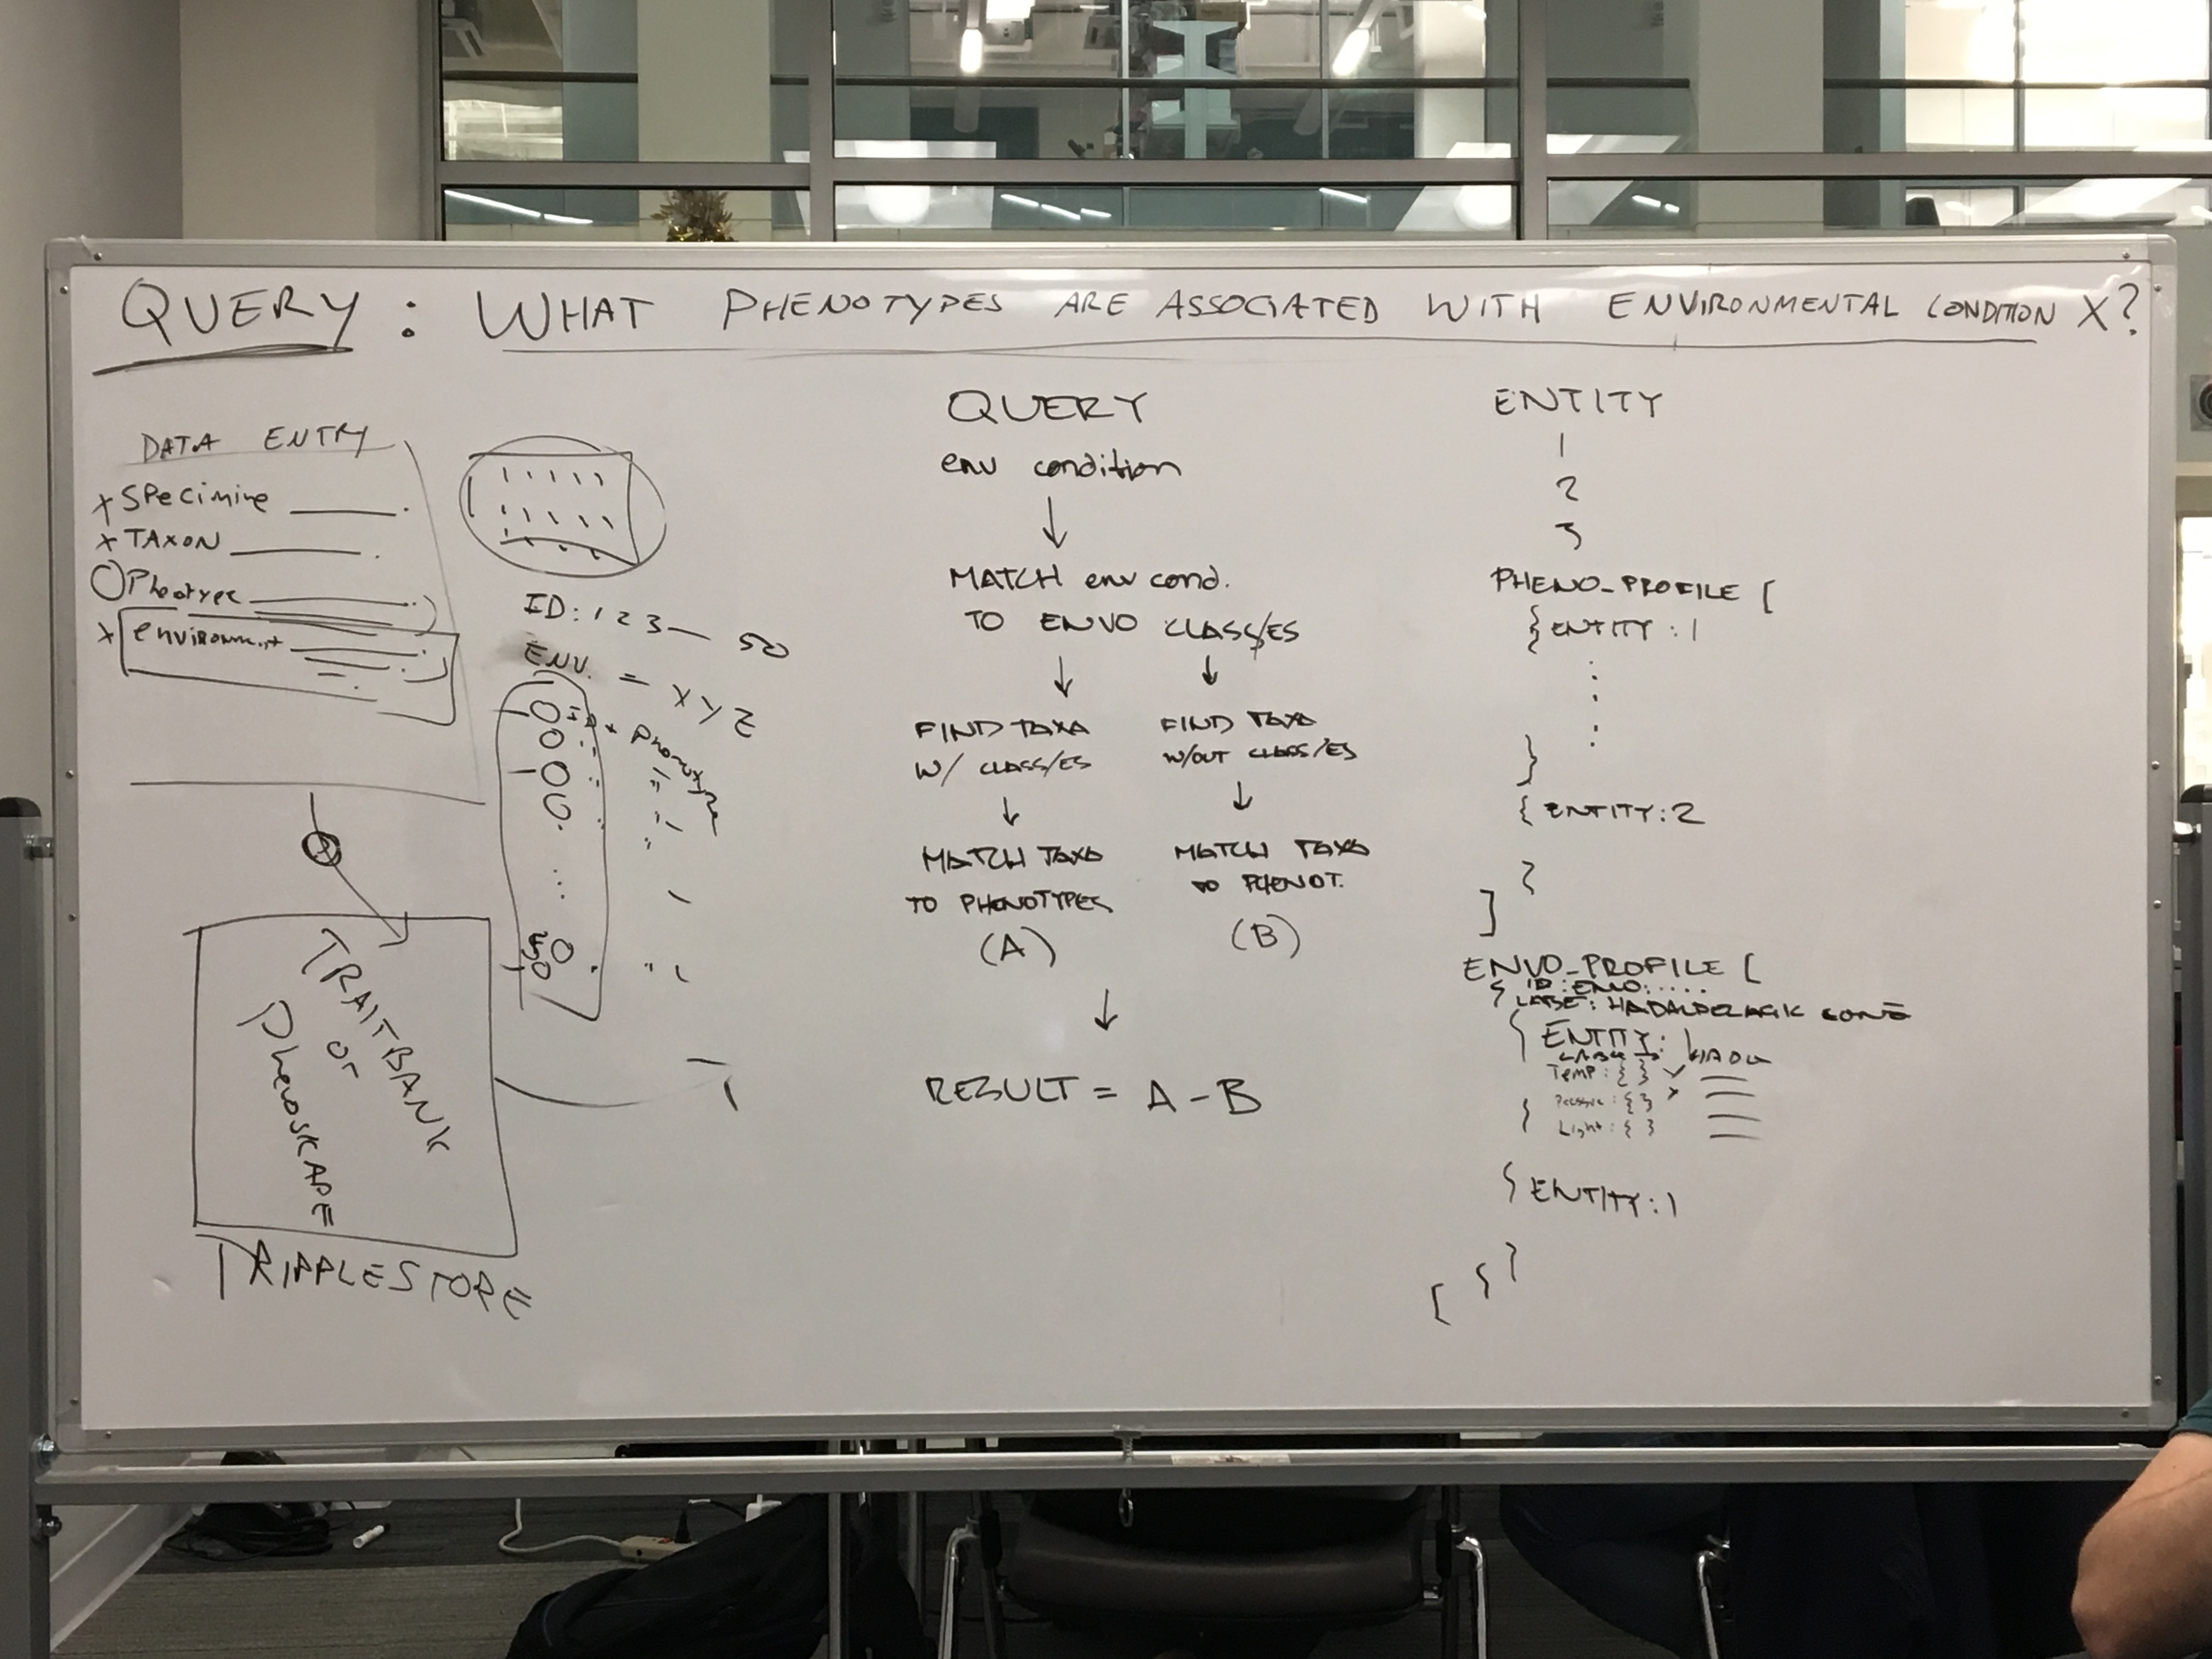 QUERY: WHAT PHENOTYPES ARE ASSOCIATED WITH ENVIRONMENTAL CONDITION X?
DATA ENTRY
x SPecimine
x TAXON
x environment
ID: 1 2 3 — 50
ENV. = X Y Z
50
TRAITBANK
or
PhenoskAPE
TRIPPLESTORE
QUERY
env condition
MATCH env cond.
TO ENVO CLASS/ES
FIND TAXA
W/ CLASS/ES
MATCH TAXA
TO PHENOTYPES
(A)
FIND TAXA
W/OUT CLASS/ES
MATCH TAXA
TO PHENOT.
(B)
RESULT = A - B
ENTITY
1
2
3
PHENO_PROFILE [
{ ENTITY : 1
}
{ ENTITY : 2
}
]
ENVO_PROFILE [
{ ID : ENVO: .....
LABEL: HADALPELAGIC ZONE
{ ENTITY: 1
Temp : { }
Pressure : { }
Light : { }
}
{ ENTITY : 1